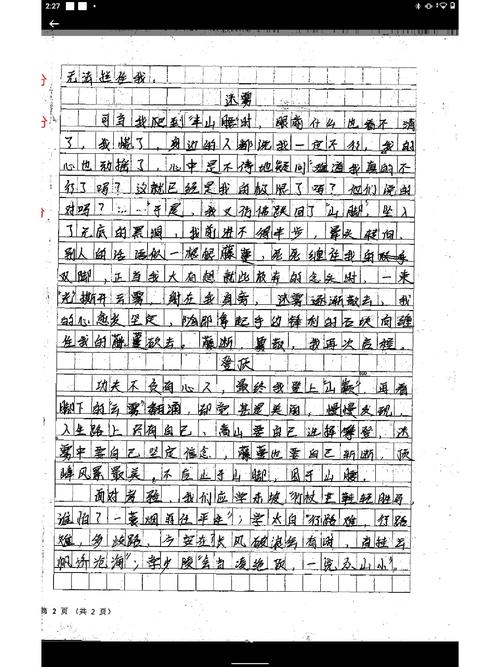 2:27
无法拦住我。
迷雾
可当我爬到"半山腰"时,眼前什么也看不清
了,我慌了,身边的人都说我一定不行,我的
心也动摇了,心中是不停地疑问"难道我真的不
行了吗?这就已经是我的极限了吗?他们说的
对吗?……"于是,我又仿佛跌回了"山脚",坠入
了无底的黑洞,我前进不得半步,晕头转向,
别人的话语似一根根藤蔓,死死缠在我的
双脚,正当我大有想就此放弃的念头时,一束
"光"撕开云雾,射在我身旁,迷雾逐渐散去,我
的心愈发坚定,随即拿起手边锋利的石块向缠
住我的藤蔓砍去。藤断,雾散,我再次启程。
登顶
功夫不负有心人,最终我登上"山巅",再看
脚下的"云雾"翻涌,却觉甚是美丽,慢慢发现,
人生路上只有自己,高山要自己选择攀登,迷
雾中要自己坚定信念,藤蔓也要自己斩断,顶
峰风景最美。不应止于山脚,困于山腰。
面对考验,我们应学东坡"竹杖芒鞋轻胜马,
谁怕?一蓑烟雨任平生";学太白"行路难,行路
难,多歧路,今安在?长风破浪会有时,直挂云
帆济沧海";学少陵"会当凌绝顶,一览众山小"。
第 2 页 (共 2 页)